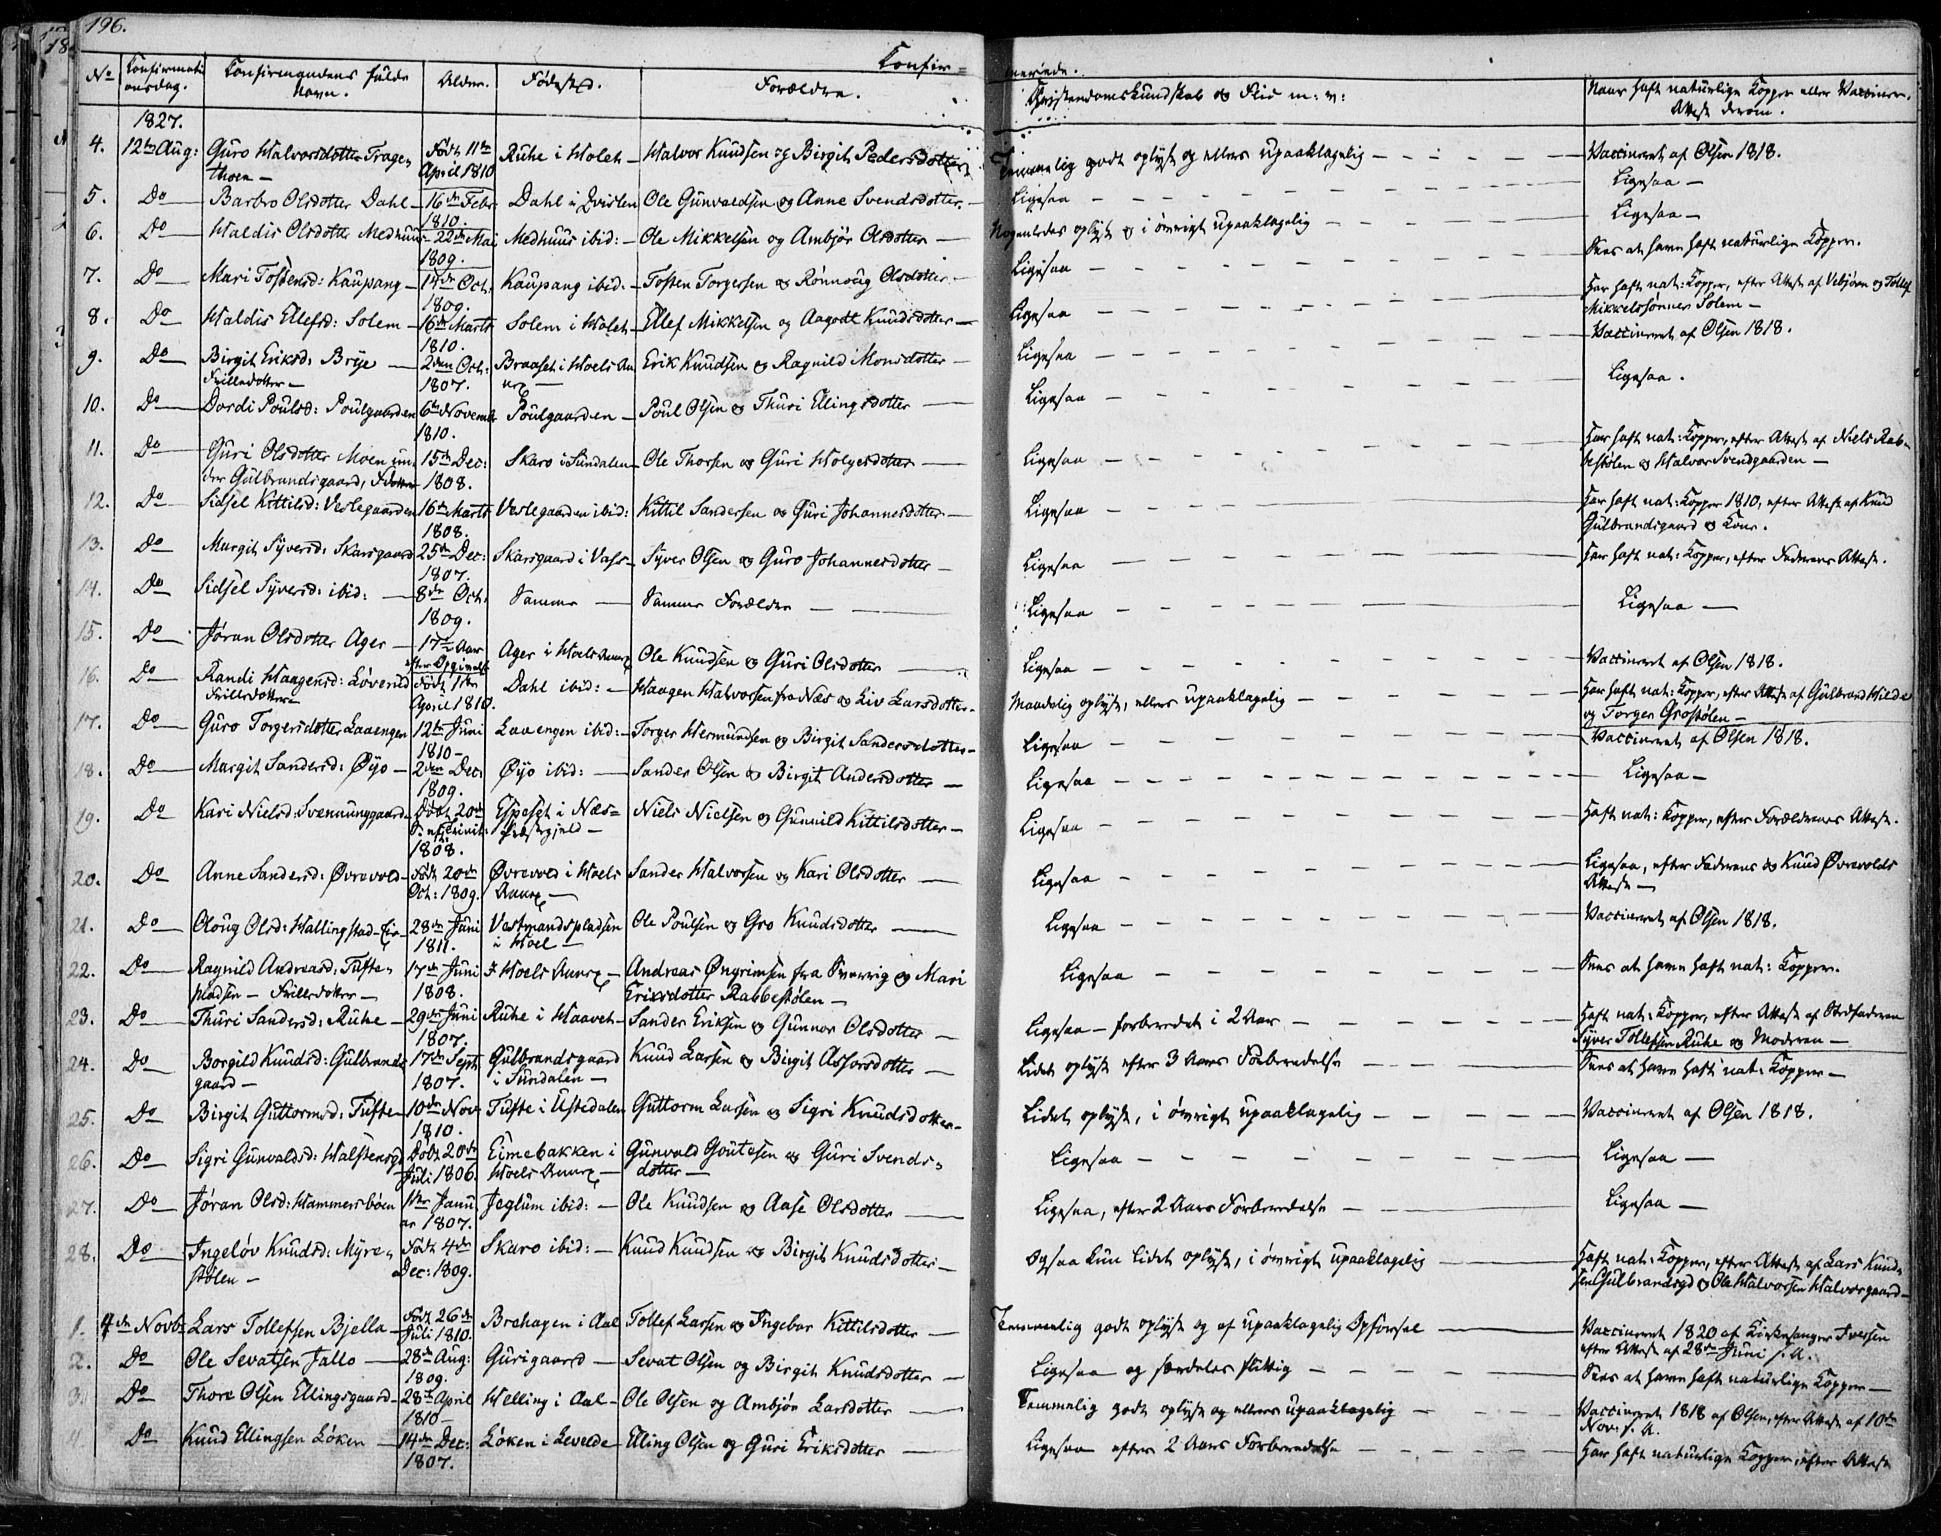 196.
Konfir=
merede.
No Konfirmati Konfirmandens fulde Alder. Fødested. Forældre. Christendomskundskab og Flid m: v: Naar haft naturlige Kopper eller Vaccineret
onsdag. Navn. Attest derom.
1827.
4. 12te Aug: Guro Halvorsdotter Trage= Født 11te Ruhe i Holet Halvor Knudsen og Birgit Pedersdotter Temmelig godt oplyst og ellers upaaklagelig Vaccineret af Olsen 1818.
thoen April 1810
5. Do Barbro Olsdotter Dahl 16de Febr Dahl i Ole Gunvaldsen og Anne Svendsdotter. Ligesaa Ligesaa
1810.
6. Do Haldis Olsdotter Medhuus 22de Mai Medhuus ibid: Ole Mikkelsen og Ambjør Olsdotter Nogenledes oplyst og i øvrigt upaaklagelig Ligesaa
1809.
7. Do Mari Tostensd: Kaupang 14de Oct: Kaupang ibid: Tosten Torgersen og Rønnoug Olsdotter Ligesaa Sees at have haft naturlige Kopper.
1809.
8. Do Haldis Ellefsd: Solem 16de Marts Solem i Holet Ellef Mikkelsen og Aagodt Knudsdotter Ligesaa Har haft nat: Kopper, efter Attest af Vebjørn og Tollef
1810. Mikkelsønner Solem
9. Do Birgit Eriksd: Brye 2den Oct: Braaset i Hoels An Erik Knudsen og Ragnild Monsdotter Ligesaa Vaccineret af Olsen 1818.
Frilledotter 1807. nex
10. Do Dordi Poulsd: Poulgaarden 6te Novemb Poulgaarden Poul Olsen og Thuri Ellingsdotter Ligesaa Ligesaa.
1810.
11. Do Guri Olsdotter Moen un= 15de Dec: Skaro i Sundalen Ole Thorsen og Guri Holgersdotter Ligesaa Har haft nat: Kopper, efter Attest af Niels Rab=
der Gulbrandsgaard, Fdotter 1808. bestølen og Halvor Svendgaarden
12. Do Sidsel Kittilsd: Veslegaarden 16de Marts Veslegaarden ibid: Kittil Sandersen og Guri Johannesdotter Ligesaa Har haft nat: Kopper 1810, efter Attest af Knud
1808. Gulbrandsgaard og Kone.
13. Do Margit Syversd: Skarsgaard 25de Dec: Skarsgaard i Vats Syver Olsen og Guro Johannesdotter Ligesaa Har haft nat: Kopper, efter Faderens Attest.
1807.
14. Do Sidsel Syversd: ibid: 8de Oct: Samme Samme Forældre Ligesaa Ligesaa
1809.
15. Do Jøran Olsdotter Ager 17 Aar Ager i Hoels Annex Ole Knudsen og Guri Olsdotter Ligesaa Vaccineret af Olsen 1818.
efter Opgivelse
16. Do Randi Haagensd: Løverud Født 1ste Dahl ibid: Haagen Halvorsen fra Næs og Liv Larsdotter Maadelig oplyst, ellers upaaklagelig Har haft nat: Kopper, efter Attest af Gulbrand Hilde
Frilledotter April 1810. og Torger Grostølen
17. Do Guro Torgersdotter Laaengen 12te Juni Laaengen ibid: Torger Hermundsen og Birgit Sandersdotter Ligesaa Vaccineret af Olsen 1818.
1810
18. Do Margit Sandersd: Øyo 2den Dec: Øyo ibid: Sander Olsen og Birgit Andersdotter Ligesaa Ligesaa
1809.
19. Do Kari Nielsd: Svennunggaard Døbt 20de Espeset i Næs= Niels Nielsen og Gunild Kittilsdotter Ligesaa Haft nat: Kopper, efter Forældrenes Attest.
S. eft: Trinit: Præstegjeld
1808.
20. Do Anne Sandersd: Øvrevold Født 20de Øvrevold i Hoels Sander Halvorsen og Kari Olsdotter Ligesaa Ligesaa, efter Faderens og Knud Øvrevolds
Oct: 1809. Annex Attest
21. Do Oloug Olsd: Hallingstad-Eie 28de Juni Vestmandspladsen Ole Poulsen og Gro Knudsdotter Ligesaa Vaccineret af Olsen 1818.
1811. i Hoel
22. Do Ragnild Andreasd: Tufte= 17de Juni I Hoels Annex Andreas Øngrimsen fra Sverrig og Mari Ligesaa Sees at have haft nat: Kopper.
pladsen Frilledotter 1808. Eriksdotter Rabbestølen
23. Do Thuri Sandersd: Ruhe 29de Juni Ruhe i Haavet Sander Eriksen og Gunnor Olsdotter Ligesaa forberedet i 2 Aar Haft nat: Kopper, efter Attest af Stedfaderen
1807. Syver Tollefsen Ruhe og Moderen
24. Do Borgild Knudsd: Gulbrands 17de Sept Gulbrandsgaard Knud Larsen og Birgit Assorsdotter Lidet oplyst efter 3 Aars Forberedelse Sees at have haft nat: Kopper
gaard 1807. i Sundalen
25. Do Birgit Guttormsd: Tufte 10de Nov Tufte i Ustedalen Guttorm Larsen og Sigri Knudsdotter Lidet oplyst, i øvrigt upaaklagelig Vaccineret af Olsen 1818.
1810.
26. Do Sigri Gunvaldsd: Halstensgd Døbt 20de Eimebakken i Gunvald Goutesen og Guri Svends= Ligesaa Ligesaa
Juli 1806. Hoels Annex dotter
27. Do Jøran Olsd: Hammersbøen 1ste Janu Jeglum ibid: Ole Knudsen og Aase Olsdotter Ligesaa, efter 2 Aars Forberedelse Ligesaa
ar 1807.
28. Do Ingeløv Knudsd: Myre= Født 4de Skaro ibid: Knud Knudsen og Birgit Knudsdotter Ogsaa kun lidet oplyst, i øvrigt upaaklagelig Haft nat: Kopper, efter Attest af Lars Knud=
stølen Dec: 1809. sen Gulbrandsgd og Ole Halvorsen Halvorsgaard
1. 4de Novbr Lars Tollefsen Bjella Født 26de Brehagen i Aal Tollef Larsen og Ingebor Kittilsdotter Temmelig godt oplyst og af upaaklagelig Opførsel Vaccineret 1820 af Kirkesanger Iversen
Juli 1810. efter Attest af 28de Juni s. A.
2. Do Ole Sevatsen Jallo 28de Aug: Gurigaard Sevat Olsen og Birgit Knudsdotter Ligesaa og særdeles flittig Sees at have haft naturlige Kopper
1809.
3. Do Thore Olsen Ellingsgaard 28de April Helling i Aal Ole Olsen og Ambjør Larsdotter Temmelig godt oplyst og ellers upaaklagelig Vaccineret 1818 af Olsen, efter Attest af 10de
1810 Nov: s. A.
4 Do Knud Ellingsen Løken 14de Dec: Løken i Levelde Elling Olsen og Guri Eriksdotter Ligesaa efter 2 Aars Forberedelse Har haft naturlige Kopper, efter Attest
1807.